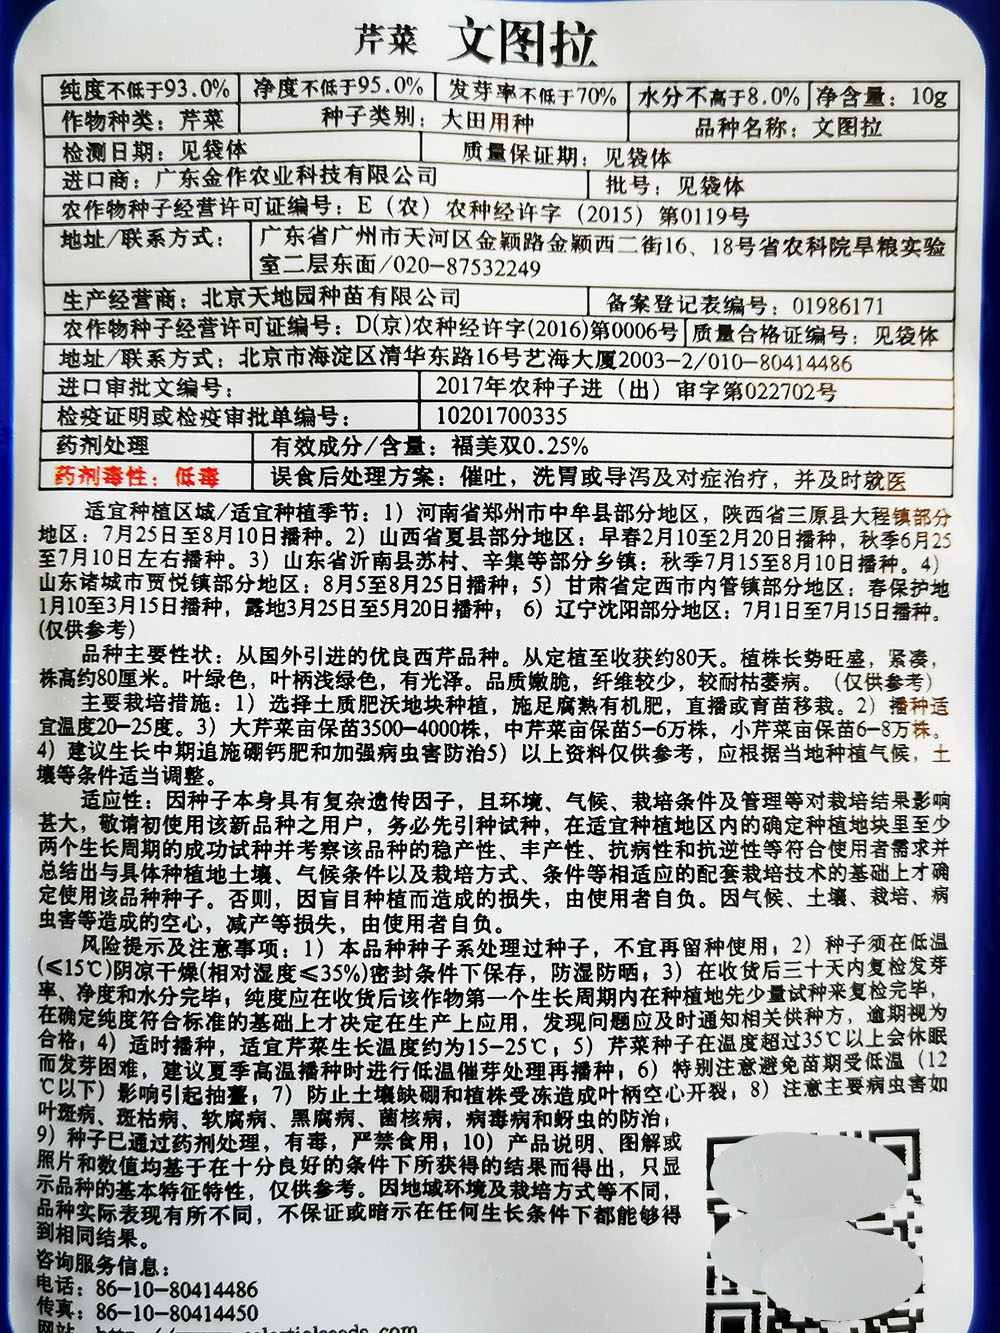 芹菜 文图拉
纯度不低于93.0% 净度不低于95.0% 发芽率不低于70% 水分不高于8.0% 净含量：10g
作物种类：芹菜 种子类别：大田用种 品种名称：文图拉
检测日期：见袋体 质量保证期：见袋体
进口商：广东金作农业科技有限公司 批号：见袋体
农作物种子经营许可证编号：E（农）农种经许字（2015）第0119号
地址/联系方式： 广东省广州市天河区金颖路金颖西二街16、18号省农科院旱粮实验
室二层东面/020-87532249
生产经营商：北京天地园种苗有限公司 备案登记表编号：01986171
农作物种子经营许可证编号：D(京)农种经许字(2016)第0006号 质量合格证编号：见袋体
地址/联系方式：北京市海淀区清华东路16号艺海大厦2003-2/010-80414486
进口审批文编号： 2017年农种子进（出）审字第022702号
检疫证明或检疫审批单编号： 10201700335
药剂处理 有效成分/含量：福美双0.25%
药剂毒性：低毒 误食后处理方案：催吐，洗胃或导泻及对症治疗，并及时就医
适宜种植区域/适宜种植季节：1）河南省郑州市中牟县部分地区，陕西省三原县大程镇部分
地区：7月25日至8月10日播种。2）山西省夏县部分地区：早春2月10至2月20日播种，秋季6月25
至7月10日左右播种。3）山东省沂南县苏村、辛集等部分乡镇：秋季7月15至8月10日播种。4）
山东诸城市贾悦镇部分地区：8月5至8月25日播种；5）甘肃省定西市内管镇部分地区：春保护地
1月10至3月15日播种，露地3月25日至5月20日播种；6）辽宁沈阳部分地区：7月1日至7月15日播种。
(仅供参考)
品种主要性状：从国外引进的优良西芹品种。从定植至收获约80天。植株长势旺盛，紧凑，
株高约80厘米。叶绿色，叶柄浅绿色，有光泽。品质嫩脆，纤维较少，较耐枯萎病。（仅供参考）
主要栽培措施：1）选择土质肥沃地块种植，施足腐熟有机肥，直播或育苗移栽。2）播种适
宜温度20-25度。3）大芹菜亩保苗3500-4000株，中芹菜亩保苗5-6万株，小芹菜亩保苗6-8万株。
4）建议生长中期追施硼钙肥和加强病虫害防治5）以上资料仅供参考，应根据当地种植气候，土
壤等条件适当调整。
适应性：因种子本身具有复杂遗传因子，且环境、气候、栽培条件及管理等对栽培结果影响
甚大，敬请初使用该新品种之用户，务必先引种试种，在适宜种植地区内的确定种植地块里至少
两个生长周期的成功试种并考察该品种的稳产性、丰产性、抗病性和抗逆性等符合使用者需求并
总结出与具体种植地土壤、气候条件以及栽培方式、条件等相适应的配套栽培技术的基础上才确
定使用该品种种子。否则，因盲目种植而造成的损失，由使用者自负。因气候、土壤、栽培、病
虫害等造成的空心，减产等损失，由使用者自负。
风险提示及注意事项：1）本品种种子系处理过种子，不宜再留种使用；2）种子须在低温
(≤15℃)阴凉干燥(相对湿度≤35%)密封条件下保存，防湿防晒；3）在收货后三十天内复检发芽
率、净度和水分完毕；纯度应在收货后该作物第一个生长周期内在种植地先少量试种来复检完毕，
在确定纯度符合标准的基础上才决定在生产上应用，发现问题应及时通知相关供种方，逾期视为
合格；4）适时播种，适宜芹菜生长温度约为15-25℃；5）芹菜种子在温度超过35℃以上会休眠
而发芽困难，建议夏季高温播种时进行低温催芽处理再播种；6）特别注意避免苗期受低温（12
℃以下）影响引起抽薹；7）防止土壤缺硼和植株受冻造成叶柄空心开裂；8）注意主要病虫害如
叶斑病、斑枯病、软腐病、黑腐病、菌核病，病毒病和蚜虫的防治；
9）种子已通过药剂处理，有毒，严禁食用；10）产品说明、图解或
照片和数值均基于在十分良好的条件下所获得的结果而得出，只显
示品种的基本特征特性，仅供参考。因地域环境及栽培方式等不同，
品种实际表现有所不同，不保证或暗示在任何生长条件下都能够得
到相同结果。
咨询服务信息：
电话：86-10-80414486
传真：86-10-80414450